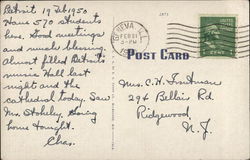 Detroit 19 Feb 1950
Have 570 students
here. Good meetings
and much blessing.
Almost filled Detroit's
music Hall last
night and the
cathedral today. Saw
Mrs. Stokeley. Going
home tonight.
Chas.
GENEVA, ILL.
FEB 21
5-PM
POST CARD
Mrs. C. H. Troutman
294 Bellair Rd
Ridgewood
N. J.